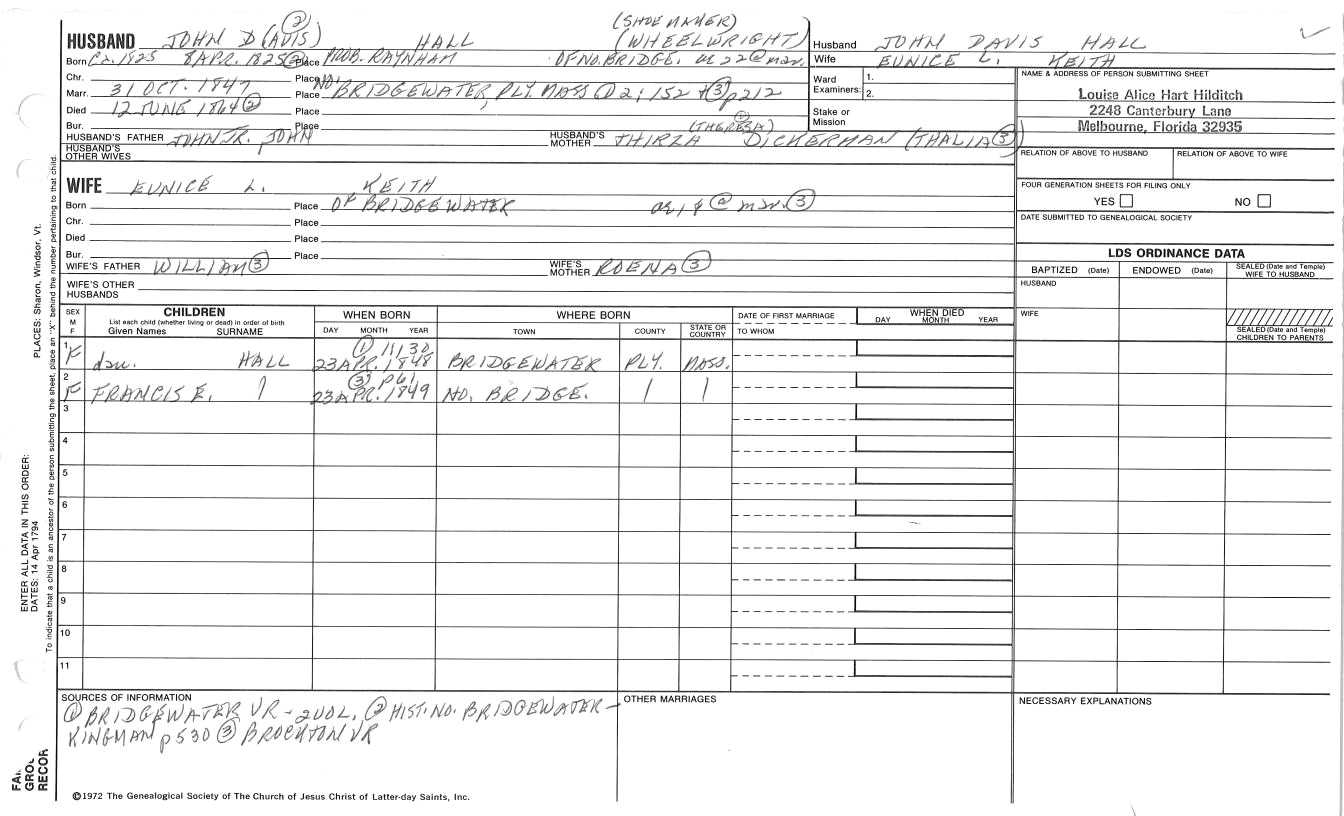 (SHOEMAKER)
HUSBAND JOHN D(AVIS) ② HALL (WHEELWRIGHT)
Born Ca. 1825 8 APR. 1825② Place PROB. RAYNHAM OF NO. BRIDGE. ae 22 @ mar.
Chr. Place
Marr. 31 OCT. 1847 Place NO. BRIDGEWATER, PLY. MASS ① 2:152 + ③ p212
Died 12 JUNE 1864② Place
Bur. Place
HUSBAND'S FATHER JOHN JR. JOHN HUSBAND'S MOTHER THIRZA (THERESA) ① DICKERMAN (THALIA③)
HUSBAND'S OTHER WIVES
WIFE EUNICE L. KEITH
Born Place OF BRIDGEWATER ae 19 @ mar. ③
Chr. Place
Died Place
Bur. Place
WIFE'S FATHER WILLIAM③ WIFE'S MOTHER ROENA③
WIFE'S OTHER HUSBANDS
Husband JOHN DAVIS HALL
Wife EUNICE L. KEITH
Ward Examiners: 1.
2.
Stake or Mission
NAME & ADDRESS OF PERSON SUBMITTING SHEET
Louise Alice Hart Hilditch
2248 Canterbury Lane
Melbourne, Florida 32935
RELATION OF ABOVE TO HUSBAND RELATION OF ABOVE TO WIFE
FOUR GENERATION SHEETS FOR FILING ONLY
YES NO
DATE SUBMITTED TO GENEALOGICAL SOCIETY
LDS ORDINANCE DATA
BAPTIZED (Date) ENDOWED (Date) SEALED (Date and Temple) WIFE TO HUSBAND
HUSBAND
WIFE
SEALED (Date and Temple) CHILDREN TO PARENTS
SEX M F CHILDREN WHEN BORN WHERE BORN DATE OF FIRST MARRIAGE WHEN DIED
List each child (whether living or dead) in order of birth
Given Names SURNAME DAY MONTH YEAR TOWN COUNTY STATE OR COUNTRY TO WHOM DAY MONTH YEAR
① 11,30
1 F dau. HALL 23 APR. 1848 BRIDGEWATER PLY. MASS.
③ p61
2 F FRANCIS E. 23 APR. 1849 NO. BRIDGE.
3
4
5
6
7
8
9
10
11
SOURCES OF INFORMATION
① BRIDGEWATER VR - 2 VOL, ② HIST. NO. BRIDGEWATER -
KINGMAN p530 ③ BROCKTON VR
OTHER MARRIAGES
NECESSARY EXPLANATIONS
©1972 The Genealogical Society of The Church of Jesus Christ of Latter-day Saints, Inc.
PLACES: Sharon, Windsor, Vt.
ENTER ALL DATA IN THIS ORDER:
DATES: 14 Apr 1794
To indicate that a child is an ancestor of the person submitting the sheet, place an "X" behind the number pertaining to that child.
FAI
GROU
RECOR